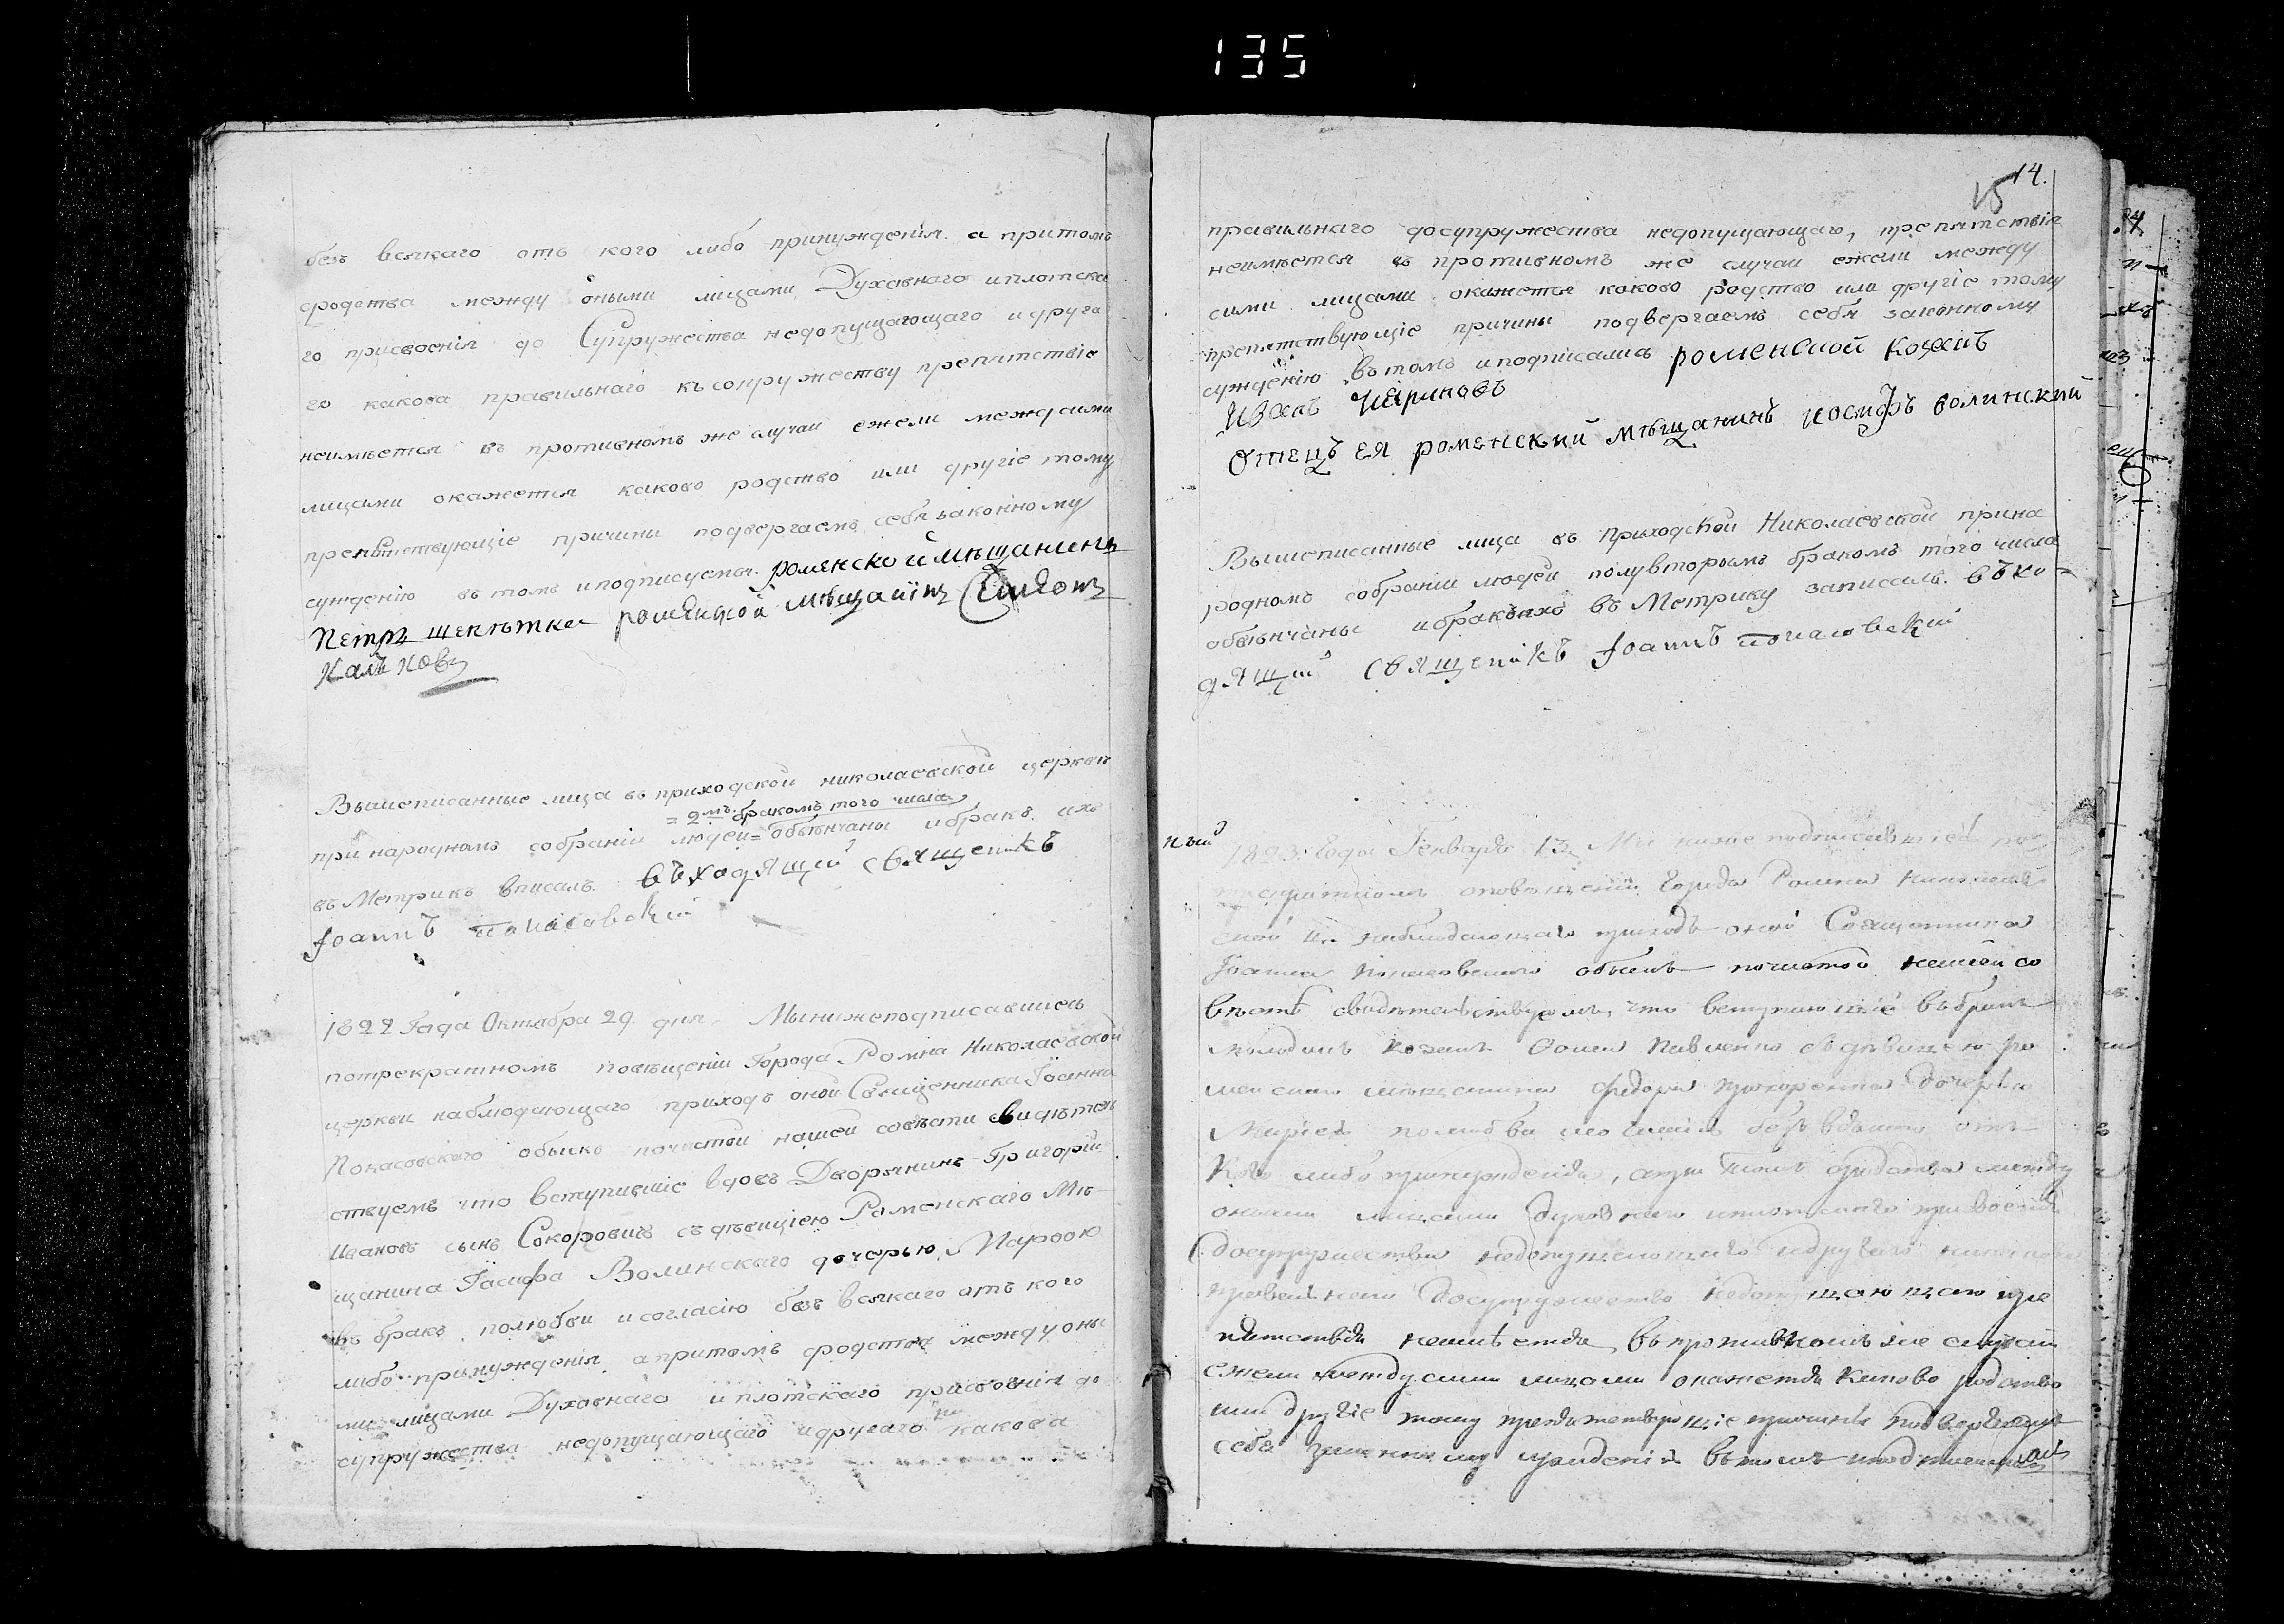 135
безъ всякаго отъ кого либо принужденія. а притомъ
сродства между оными лицами Духовнаго иплотска
го присвоенія до Супружества недопущающаго идруга
го какова правильнаго къ сопружеству препятствіе
неимѣется въ противномъ же случаи ежели междсими
лицами окажется каково родство или другіе тому
препятствующіе причины подвергаемъ себя законному
сужденію въ томъ иподписуемъ. роменской мѣщаненъ
Петръ роменской мѣщанінъ
Вышеписанные лица въ приходской николаевской церкви
= 2мъ бракомъ того числа
при народномъ собраніи людей = обвѣнчаны ибракъ ихъ
въ Метрикъ вписалъ. въходящій священикъ
Іоаннъ
1822 Года Октабра 29 дня. Мынижеподписавшиесь
потрекратномъ повѣщеніи Города Ромна Николаевской
церкви наблюдающаго приходъ оной Священника Іоанна
обыскъ почистой нашей совѣсти свидѣтель
ствуемъ что вступившіе вдовъ Дворянинъ Григорій
Ивановъ сынъ Сокоровичъ съ дѣвицею Роменскаго Мѣ
щанина Іосифа Волинскаго дочерью Марѳою
въ бракъ полюбви исогласію безъ всякаго отъ кого
либо принужденія апритомъ сродства между оны
ми лицами Духовнаго иплотскаго присвоенія до
супружества недопущающаго идругаго какова
14.
15
правильнаго досупружества недопущающаго, препятствія
неимѣется въ противномъ же случаи ежели между
сими лицами окажется каково родство или другіе тому
препятствующіе причины подвергаемъ себя законному
сужденію вътомъ иподписались роменской козакъ
Иванъ
Отецъ ея роменский мѣщанинъ иосифъ волинский
Вышеписанные лица въ приходской Николаевской прина
родномъ собраніи людей полувторымъ бракомъ того числа
обвѣнчаны ибракъ ихъ въ Метрику записалъ. въхо=
дящій священикъ Іоаннъ
1823. Года Генваря 13 Мы ниже подписавшіеся по
Города Ромна Николаев
ской ц. наблюдающаго приходъ оной Священника
Іоанна обыскъ почистой нашей со
вѣстѣ свидѣтельствуемъ, что вступающіе въбракъ
молодикъ козакъ Павленко съдѣвицею ро
менскаго мѣщанина Федора дочерью
Маріею полюбви исогласія безъ всякаго отъ
кого либо принужденія, апри томъ сродства между
оными лицами Духовнаго иплотскаго присвоенія
досупружества недопущающаго идругаго
правильнаго досупружества недопущающаго пре
пятствія неимѣется, въ противномъ же случаи
ежели между сими лицами окажется каково родство
или другіе тому препятствующіе причины подвергаемъ
себя законному сужденію въ томъ иподписались